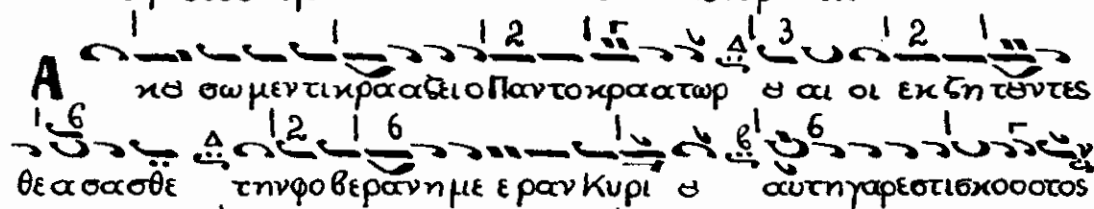 Α κȣ σωμεντικραaζειοΠαντοκραατωρ ȣ αι οι εκζητȣντες
θεασασθε τηνφοβερανημεεραν Κυρι ȣ αυτηγαρεστισκοοστος